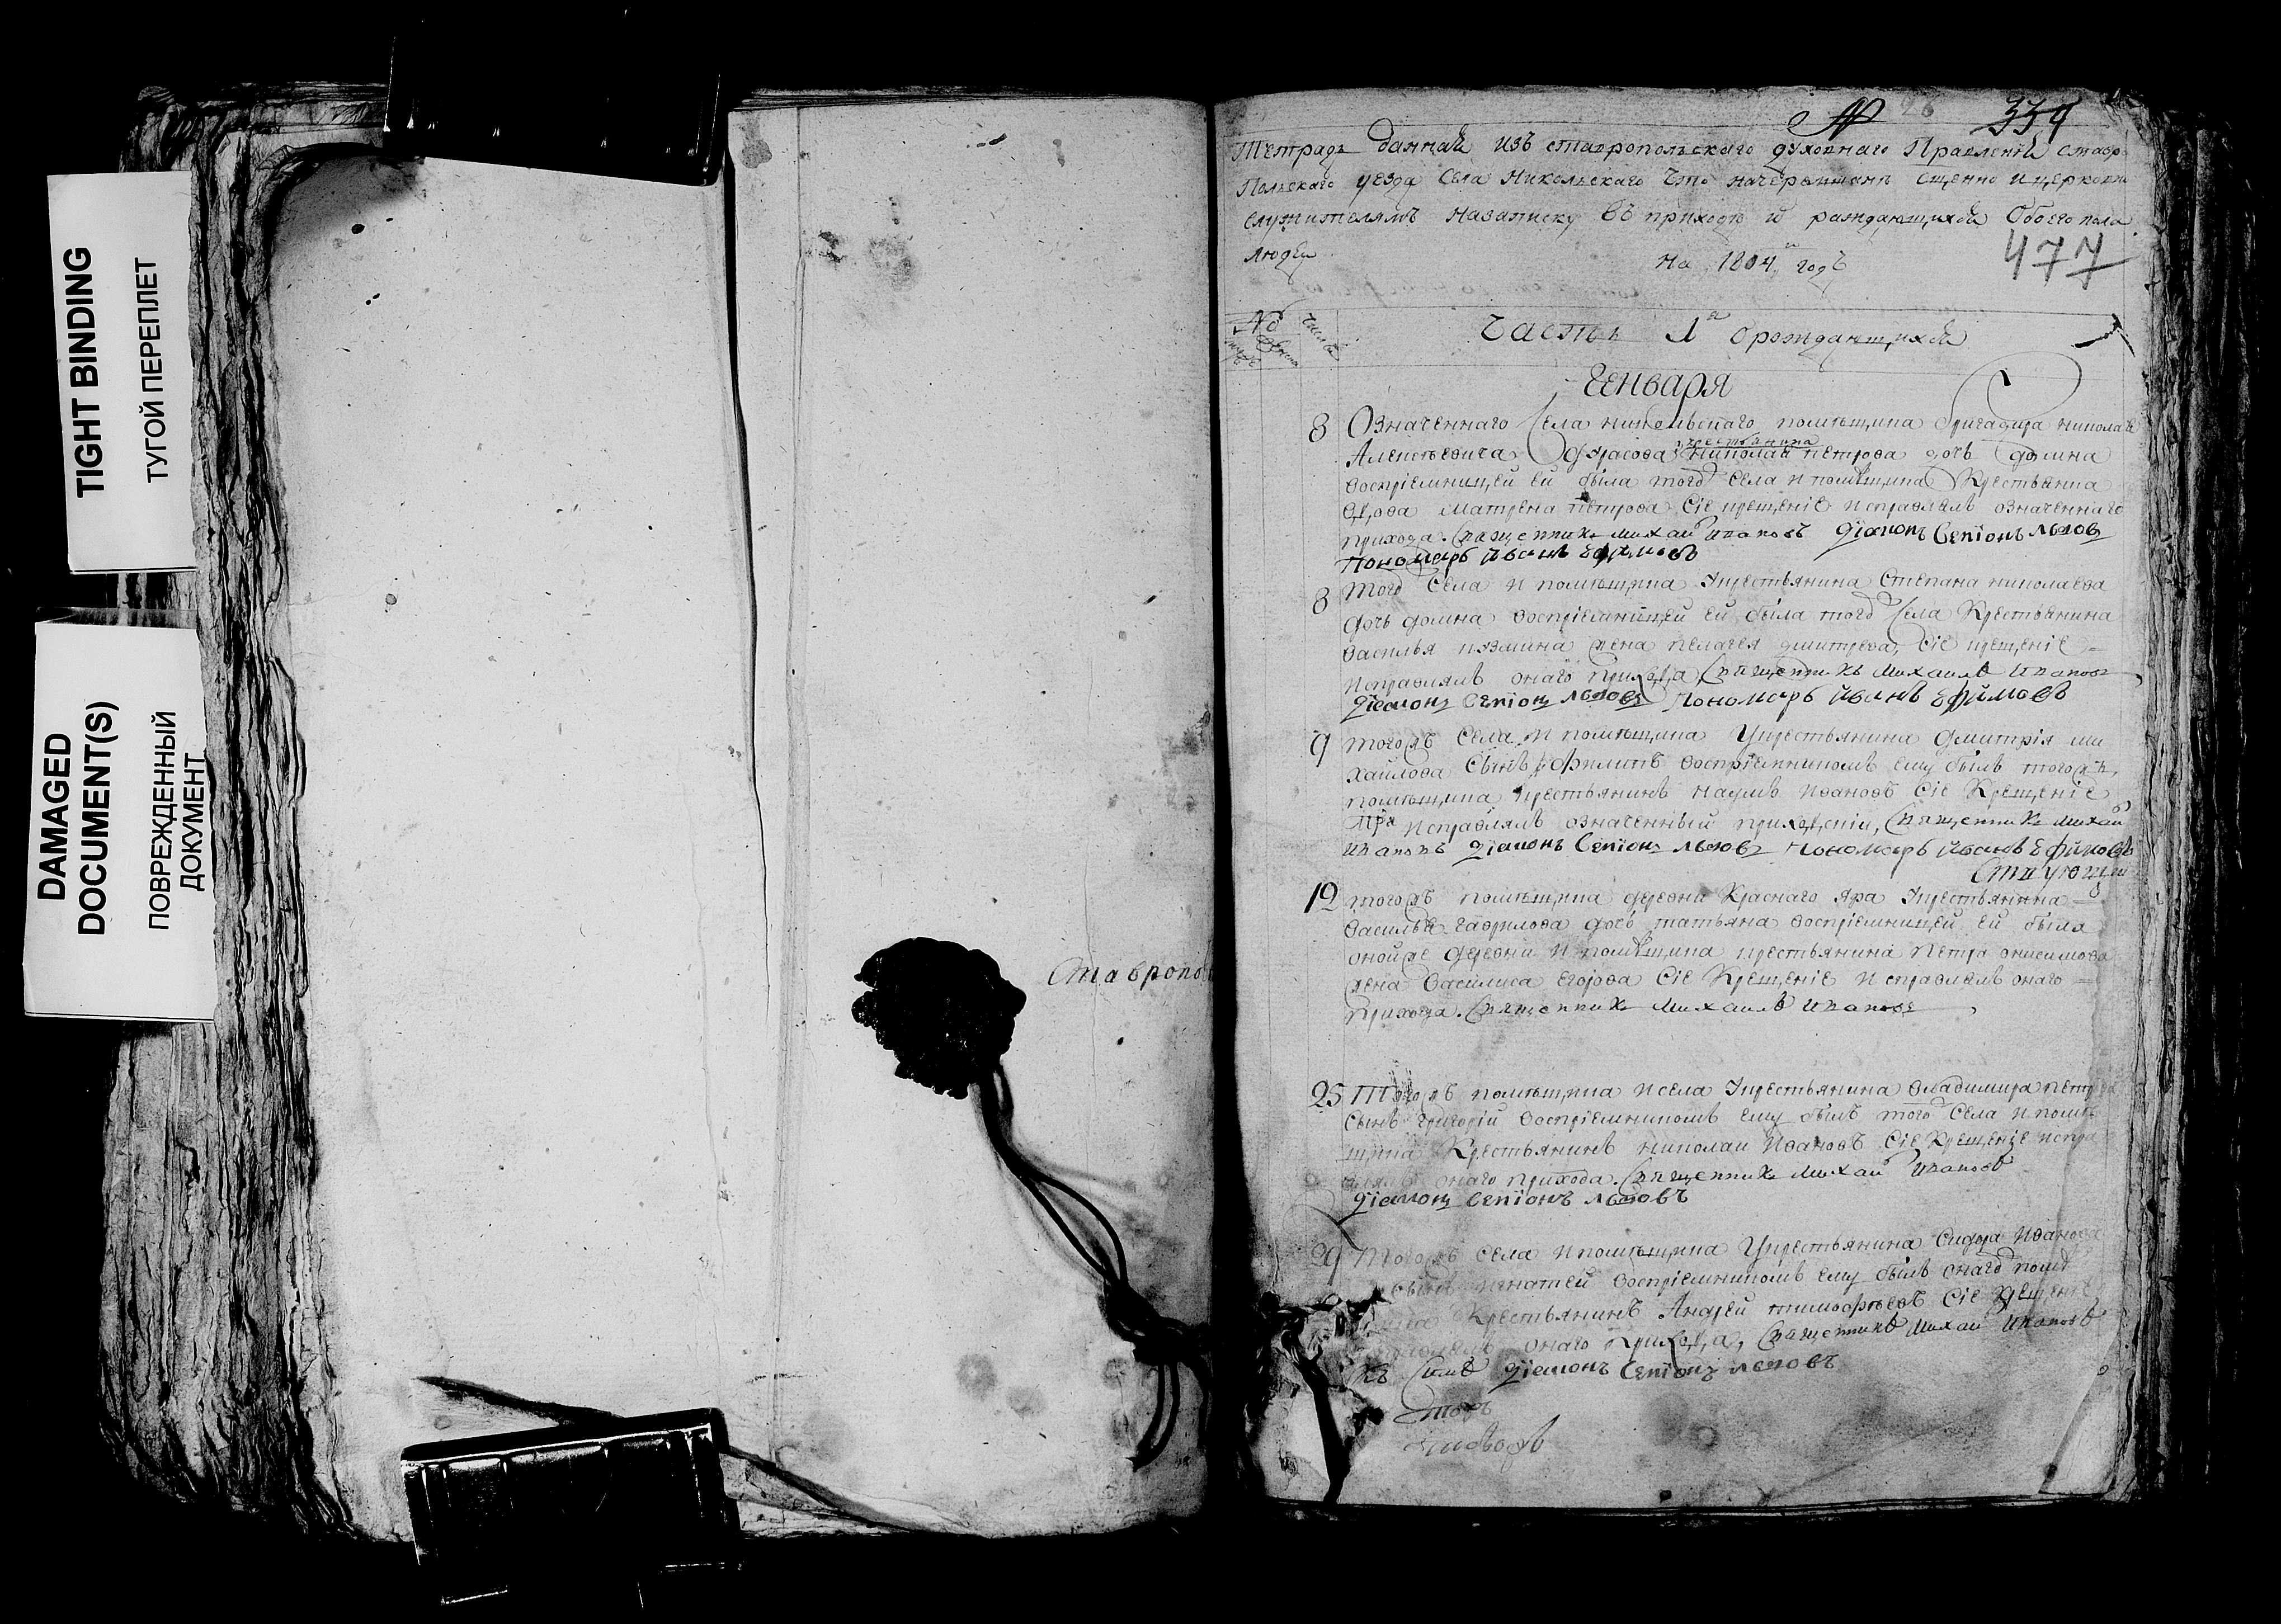 TIGHT BINDING
ТУГОЙ ПЕРЕПЛЕТ
DAMAGED
DOCUMENT(S)
ПОВРЕЖДЕННЫЙ
ДОКУМЕНТ
Ставропо
№ 26 339
Тетрадь данная изъ ставропольскаго духовнаго Правления ставро
Польскаго уезда Села Никольскаго что на черемшанъ щенно ицерковно
служителямъ назаписку въ приходъ и раждающихся Обоего пола
людеи
477
на 1804 годъ
Часть 1я орождающихся
Генваря
8 Означеннаго Села никольскаго помѣщика бригадира николая
Алексѣевича Дурасова крестьянина николая петрова дочь домна
воспрiемницей ей была тогоже Села и помѣщика Крестьянка
вдова матрена петрова Сiе крещенiе исправлялъ означеннаго
прихода. Священникъ михаилъ ивановъ дiаконъ Семiонъ львов
Пономарь иванъ ефимовъ
8 тогоже Села и помѣщика Укрестьянина Степана николаева
дочь домна воспрiемницей ей была тогоже Села Крестьянина
василья козмина жена пелагея дмитрева, Сiе крещенiе
исправлялъ онаго прихода, Священникъ михаилъ ивановъ
дiаконъ Семiонъ львовъ Пономарь иванъ ефимовъ
9 тогожъ Села и помѣщика Укрестьянина дмитрiя ми
хайлова Сынъ филипъ воспрiемникомъ ему былъ тогожъ
помѣщика крестьянинъ наумъ ивановъ Сiе Крещенiе
исправлялъ означенный священникъ михаилъ
ивановъ дiаконъ Семiонъ львовъ Пономарь иванъ ефимовъ
12 тогожъ помѣщика деревни Краснаго яра Укрестьянина
василья гаврилова дочь татьяна воспрiемницей ей была
онойже деревни и помѣщика крестьянина петра онисимова
жена василиса егорова Сiе Крещенiе исправлялъ онаго
прихода. Священникъ михаилъ ивановъ
25 Тогожъ помѣщика исела Укрестьянина владимира петр
Сынъ григорiй воспрiемникомъ ему былъ тогоже Села и помѣ
щика Крестьянинъ николаи ивановъ Сiе Крещенiе испра
влялъ онаго прихода. Священникъ михаилъ ивановъ
дiаконъ Семiонъ львовъ
29 Тогожъ Села ипомѣщика Укрестьянина Сидора иванова
сынъ игнатей воспрiемникомъ ему былъ онагоже помѣ
щика Крестьянинъ Андрей тимофѣевъ Сiе Крещенiе
исправлялъ онаго прихода, Священникъ михаилъ ивановъ
Къ Симъ дiаконъ Семiонъ львовъ